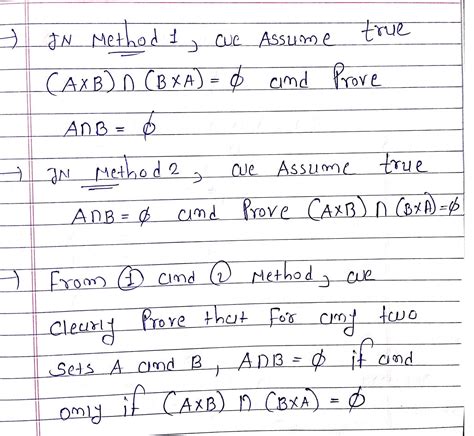 → IN Method 1, we Assume true
(A×B) ∩ (B×A) = ϕ and Prove
A∩B = ϕ
→ IN Method 2, we Assume true
A∩B = ϕ and Prove (A×B) ∩ (B×A)=ϕ
→ From ① and ② Method, we
clearly Prove that For any two
sets A and B, A∩B = ϕ if and
only if (A×B) ∩ (B×A) = ϕ